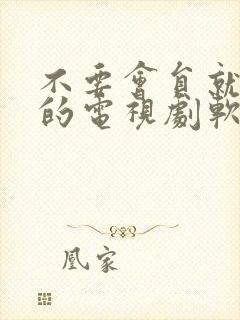 不要會員就
的電視劇軟
凰家